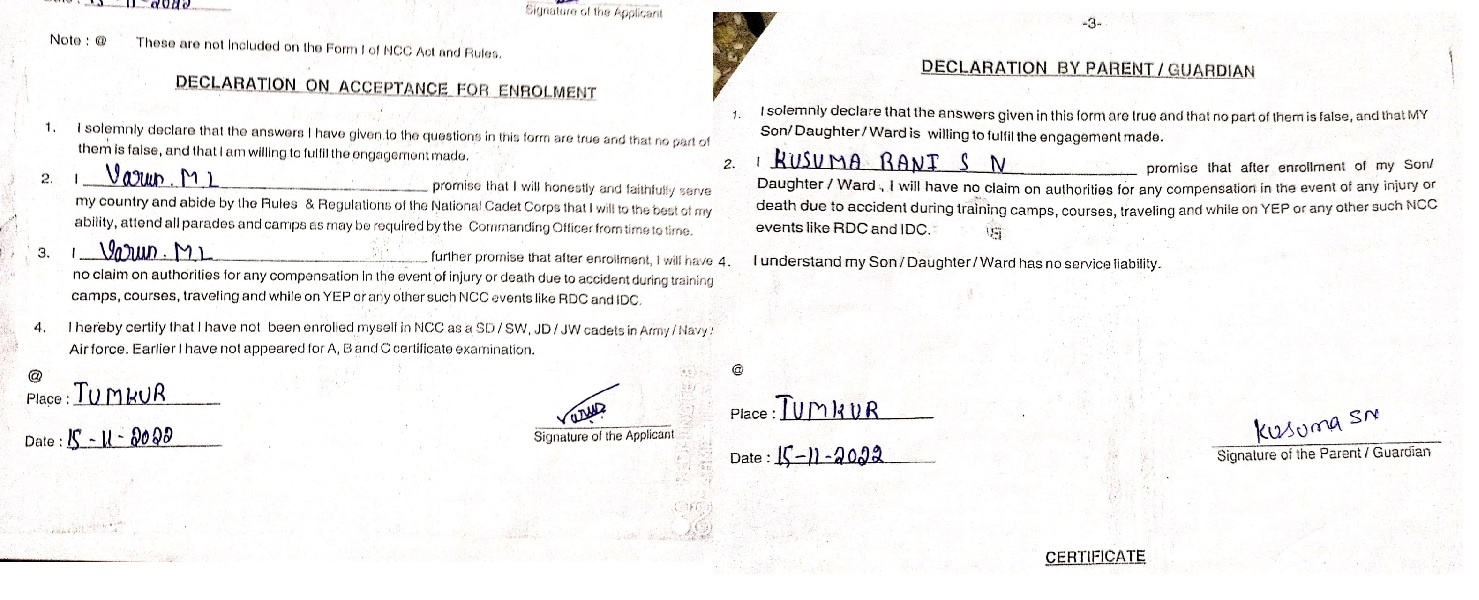 15-11-2022
Signature of the Applicant
Note : @ These are not Included on the Form I of NCC Act and Rules.
DECLARATION ON ACCEPTANCE FOR ENROLMENT
1. I solemnly declare that the answers I have given to the questions in this form are true and that no part of
them is false, and that I am willing to fulfil the engagement made.
2. I Varun. M L promise that I will honestly and faithfully serve
my country and abide by the Rules & Regulations of the National Cadet Corps that I will to the best of my
ability, attend all parades and camps as may be required by the Commanding Officer from time to time.
3. I Varun. M L further promise that after enrollment, I will have
no claim on authorities for any compensation in the event of injury or death due to accident during training
camps, courses, traveling and while on YEP or any other such NCC events like RDC and IDC.
4. I hereby certify that I have not been enrolled myself in NCC as a SD / SW, JD / JW cadets in Army / Navy /
Air force. Earlier I have not appeared for A, B and C certificate examination.
@
Place : TUMKUR
Varun
Date : 15-11-2022
Signature of the Applicant
-3-
DECLARATION BY PARENT / GUARDIAN
1. I solemnly declare that the answers given in this form are true and that no part of them is false, and that MY
Son/ Daughter / Ward is willing to fulfil the engagement made.
2. I KUSUMA RANI S N promise that after enrollment of my Son/
Daughter / Ward , I will have no claim on authorities for any compensation in the event of any injury or
death due to accident during training camps, courses, traveling and while on YEP or any other such NCC
events like RDC and IDC.
4. I understand my Son / Daughter / Ward has no service liability.
@
Place : TUMKUR
Kusuma SN
Date : 15-11-2022
Signature of the Parent / Guardian
CERTIFICATE